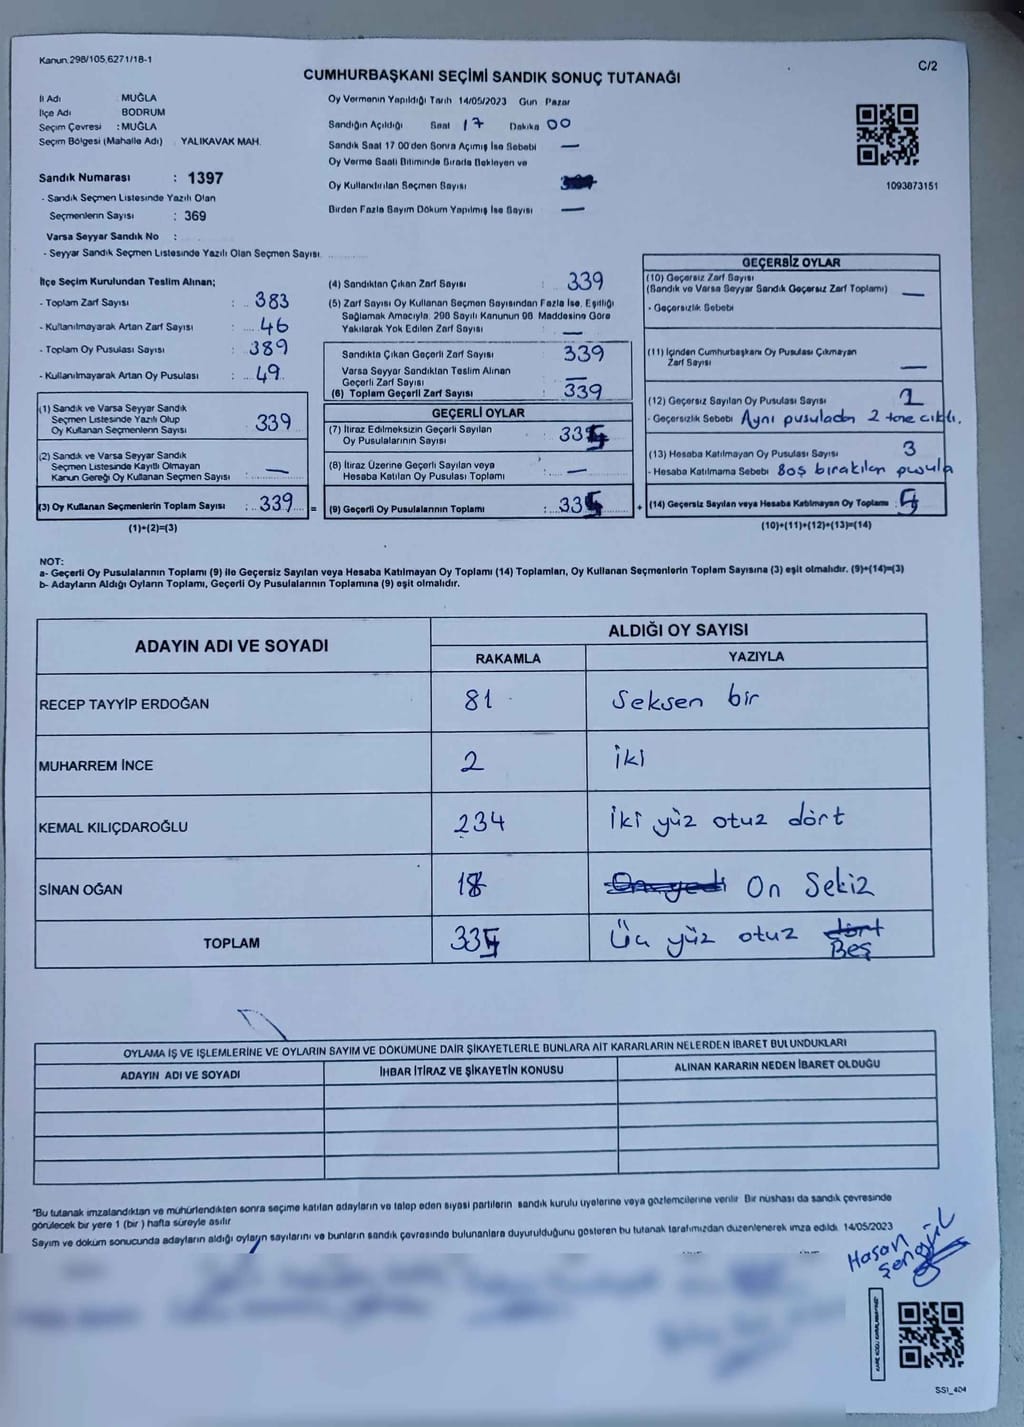 Kanun.298/105,6271/18-1
C/2
CUMHURBAŞKANI SEÇİMİ SANDIK SONUÇ TUTANAĞI
İl Adı MUĞLA
İlçe Adı BODRUM
Seçim Çevresi : MUĞLA
Seçim Bölgesi (Mahalle Adı) YALIKAVAK MAH.
Sandık Numarası : 1397
- Sandık Seçmen Listesinde Yazılı Olan
Seçmenlerin Sayısı : 369
Varsa Seyyar Sandık No :
- Seyyar Sandık Seçmen Listesinde Yazılı Olan Seçmen Sayısı
Oy Vermenin Yapıldığı Tarih 14/05/2023 Gün Pazar
Sandığın Açıldığı Saat 17 Dakika 00
Sandık Saat 17 00'den Sonra Açımış İse Sebebi —
Oy Verme Saati Bitiminde Sırada Bekleyen ve
Oy Kullandırılan Seçmen Sayısı
Birden Fazla Sayım Döküm Yapılmış İse Sayısı —
1093873151
İlçe Seçim Kurulundan Teslim Alınan;
- Toplam Zarf Sayısı : 383
- Kullanılmayarak Artan Zarf Sayısı : 46
- Toplam Oy Pusulası Sayısı : 389
- Kullanılmayarak Artan Oy Pusulası : 49
(1) Sandık ve Varsa Seyyar Sandık
Seçmen Listesinde Yazılı Olup
Oy Kullanan Seçmenlerin Sayısı : 339
(2) Sandık ve Varsa Seyyar Sandık
Seçmen Listesinde Kayıtlı Olmayan
Kanun Gereği Oy Kullanan Seçmen Sayısı : —
(3) Oy Kullanan Seçmenlerin Toplam Sayısı : 339 =
(1)+(2)=(3)
(4) Sandıktan Çıkan Zarf Sayısı : 339
(5) Zarf Sayısı Oy Kullanan Seçmen Sayısından Fazla İse, Eşitliği
Sağlamak Amacıyla, 298 Sayılı Kanunun 98 Maddesine Göre
Yakılarak Yok Edilen Zarf Sayısı : —
Sandıkta Çıkan Geçerli Zarf Sayısı : 339
Varsa Seyyar Sandıktan Teslim Alınan
Geçerli Zarf Sayısı : —
(6) Toplam Geçerli Zarf Sayısı : 339
GEÇERLİ OYLAR
(7) İtiraz Edilmeksizin Geçerli Sayılan
Oy Pusulalarının Sayısı : 335
(8) İtiraz Üzerine Geçerli Sayılan veya
Hesaba Katılan Oy Pusulası Toplamı : —
(9) Geçerli Oy Pusulalarının Toplamı : 335 +
GEÇERSİZ OYLAR
(10) Geçersiz Zarf Sayısı
(Sandık ve Varsa Seyyar Sandık Geçersiz Zarf Toplamı) —
- Geçersizlik Sebebi
(11) İçinden Cumhurbaşkanı Oy Pusulası Çıkmayan
Zarf Sayısı —
(12) Geçersiz Sayılan Oy Pusulası Sayısı 1
- Geçersizlik Sebebi Aynı pusuladan 2 tane çıktı.
(13) Hesaba Katılmayan Oy Pusulası Sayısı 3
- Hesaba Katılmama Sebebi Boş bırakılan pusula
(14) Geçersiz Sayılan veya Hesaba Katılmayan Oy Toplamı 4
(10)+(11)+(12)+(13)=(14)
NOT:
a- Geçerli Oy Pusulalarının Toplamı (9) ile Geçersiz Sayılan veya Hesaba Katılmayan Oy Toplamı (14) Toplamları, Oy Kullanan Seçmenlerin Toplam Sayısına (3) eşit olmalıdır. (9)+(14)=(3)
b- Adayların Aldığı Oyların Toplamı, Geçerli Oy Pusulalarının Toplamına (9) eşit olmalıdır.
ADAYIN ADI VE SOYADI ALDIĞI OY SAYISI
RAKAMLA YAZIYLA
RECEP TAYYİP ERDOĞAN 81 Seksen bir
MUHARREM İNCE 2 İki
KEMAL KILIÇDAROĞLU 234 İki yüz otuz dört
SİNAN OĞAN 18 On yedi On Sekiz
TOPLAM 335 Üç yüz otuz dört
Beş
OYLAMA İŞ VE İŞLEMLERİNE VE OYLARIN SAYIM VE DÖKÜMÜNE DAİR ŞİKAYETLERLE BUNLARA AİT KARARLARIN NELERDEN İBARET BULUNDUKLARI
ADAYIN ADI VE SOYADI İHBAR İTİRAZ VE ŞİKAYETİN KONUSU ALINAN KARARIN NEDEN İBARET OLDUĞU
"Bu tutanak imzalandıktan ve mühürlendikten sonra seçime katılan adayların ve talep eden siyasi partilerin sandık kurulu üyelerine veya gözlemcilerine verilir Bir nüshası da sandık çevresinde
görülecek bir yere 1 (bir) hafta süreyle asılır
Sayım ve döküm sonucunda adayların aldığı oyların sayılarını ve bunların sandık çevresinde bulunanlara duyurulduğunu gösteren bu tutanak tarafımızdan düzenlenerek imza edildi 14/05/2023
Hasan
Şengül
SSI_404